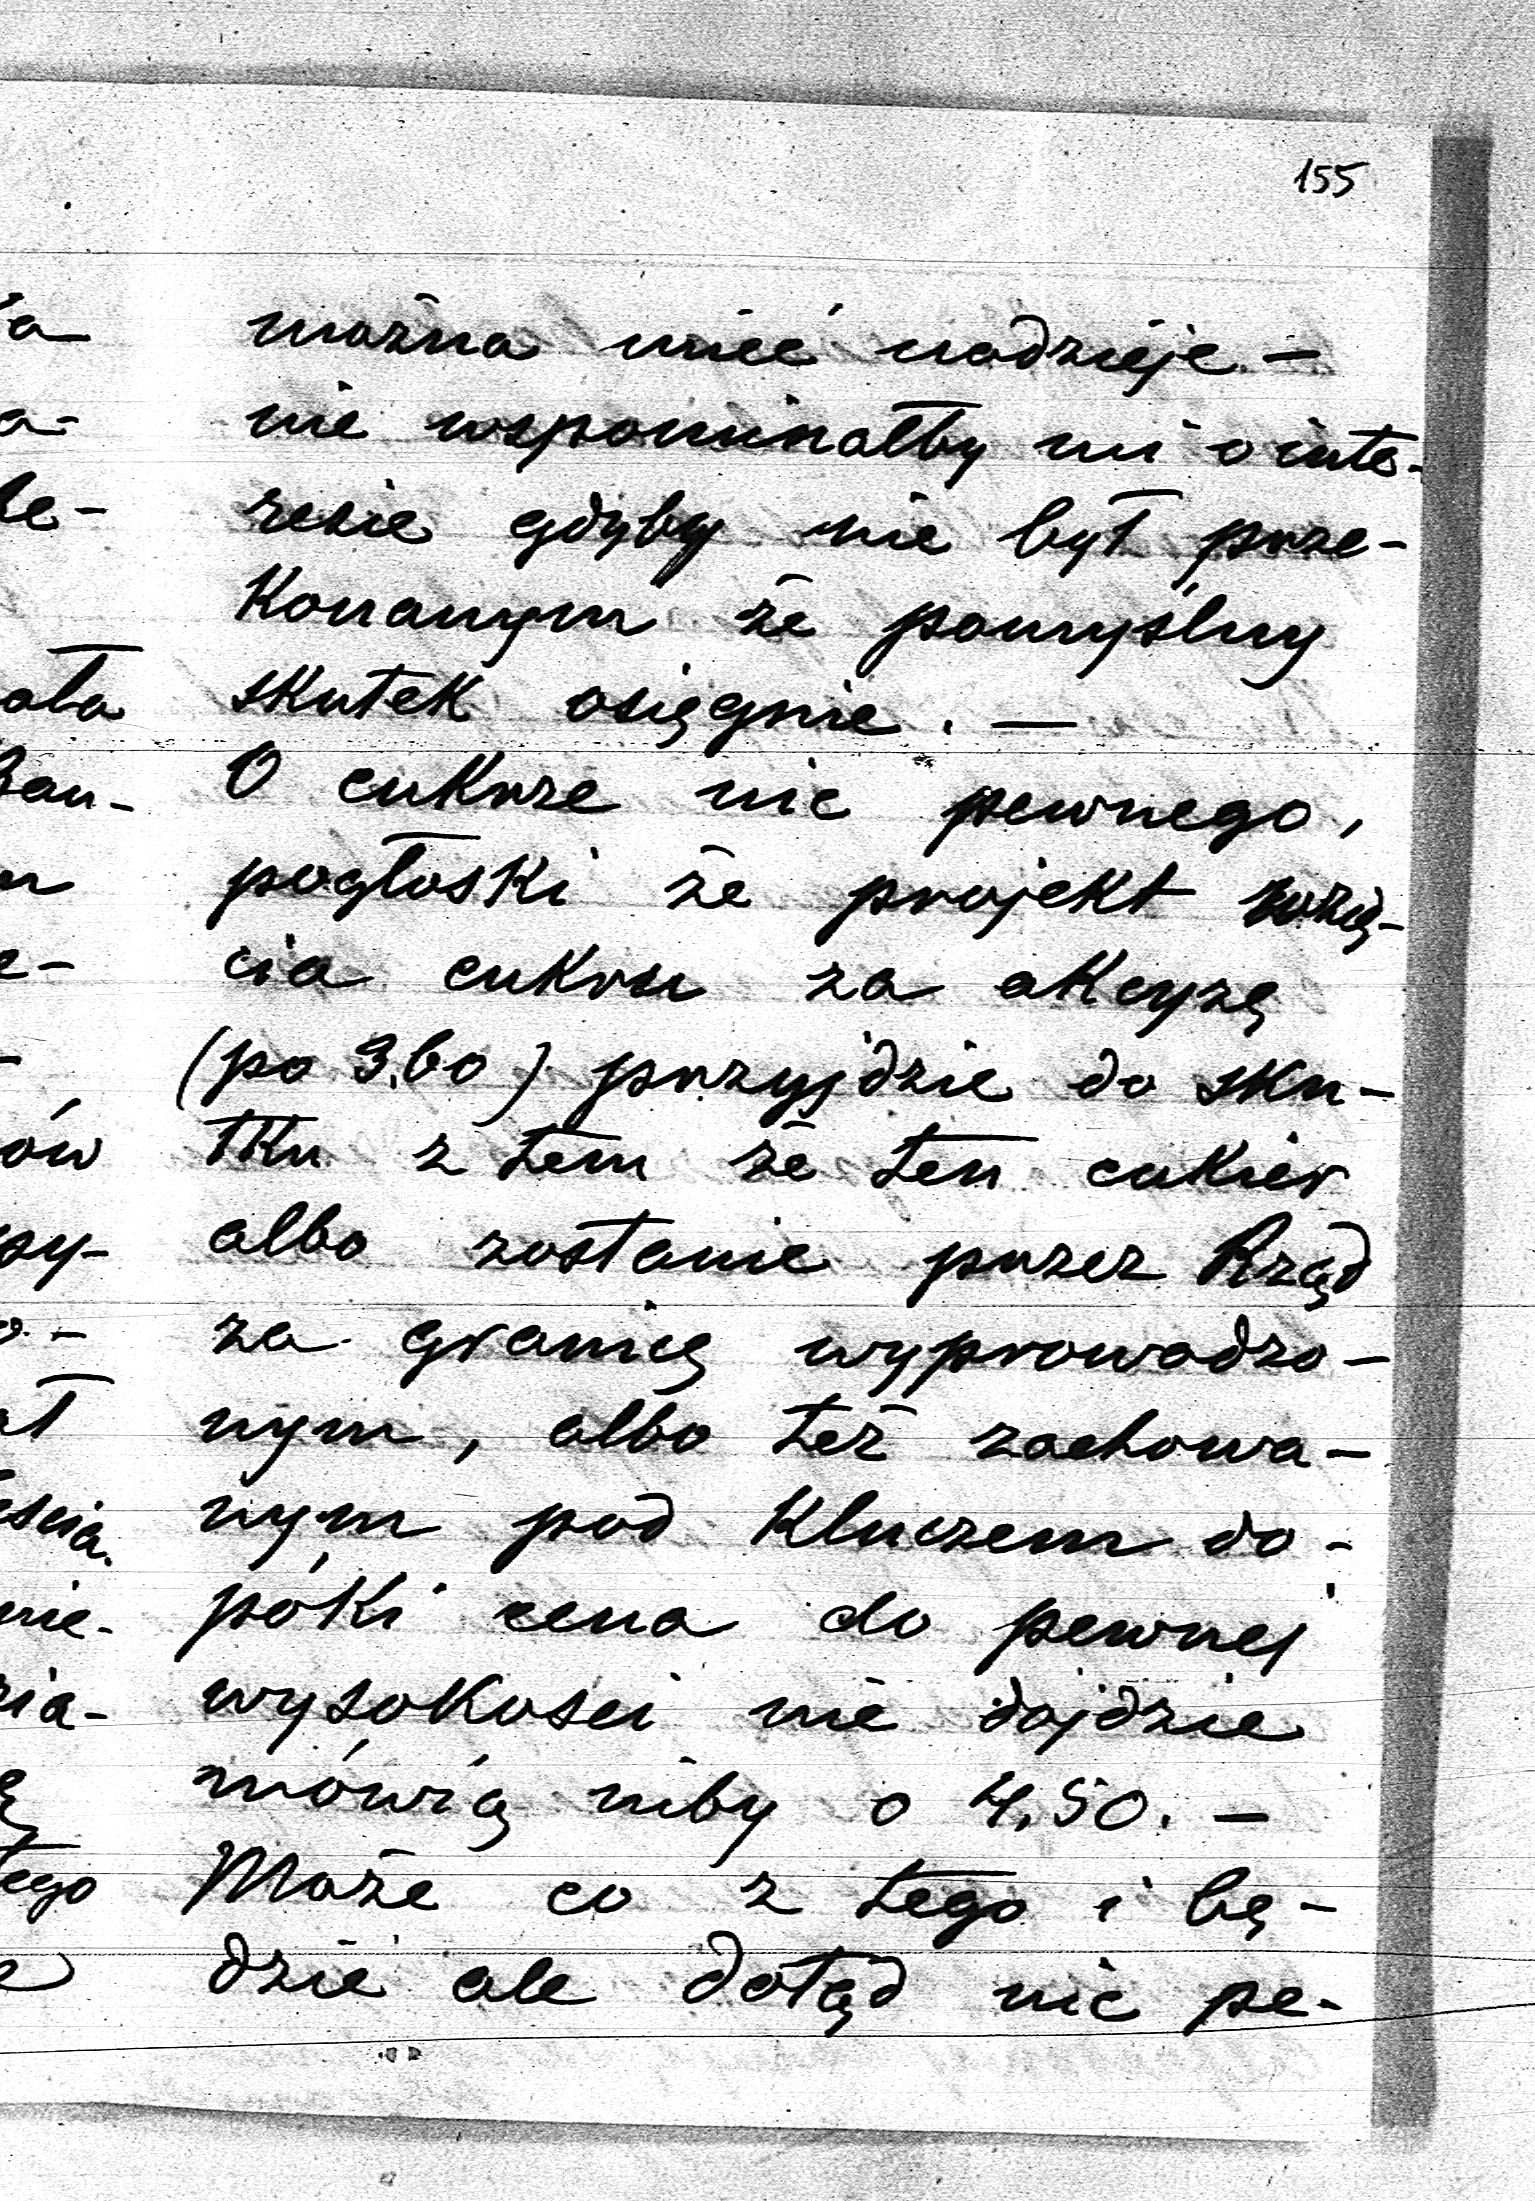 155
można mieć nadzieje. —
nie wspominałby mi o inte-
resie gdyby nie był prze-
konanym że pomyślny
skutek osięgnie. —
O cukrze nic pewnego,
pogłoski że projekt
cia cukru za akcyzę
(po 3.60) przyjdzie do sku-
tku z tem że ten cukier
albo zostanie przez Rząd
za granicę wyprowadzo-
nym, albo też zachowa-
nym pod kluczem do-
póki cena do pewnej
wysokosci nie dojdzie
mówią niby o 4,50. —
Może co z tego i bę-
dzie ale dotąd nic pe-